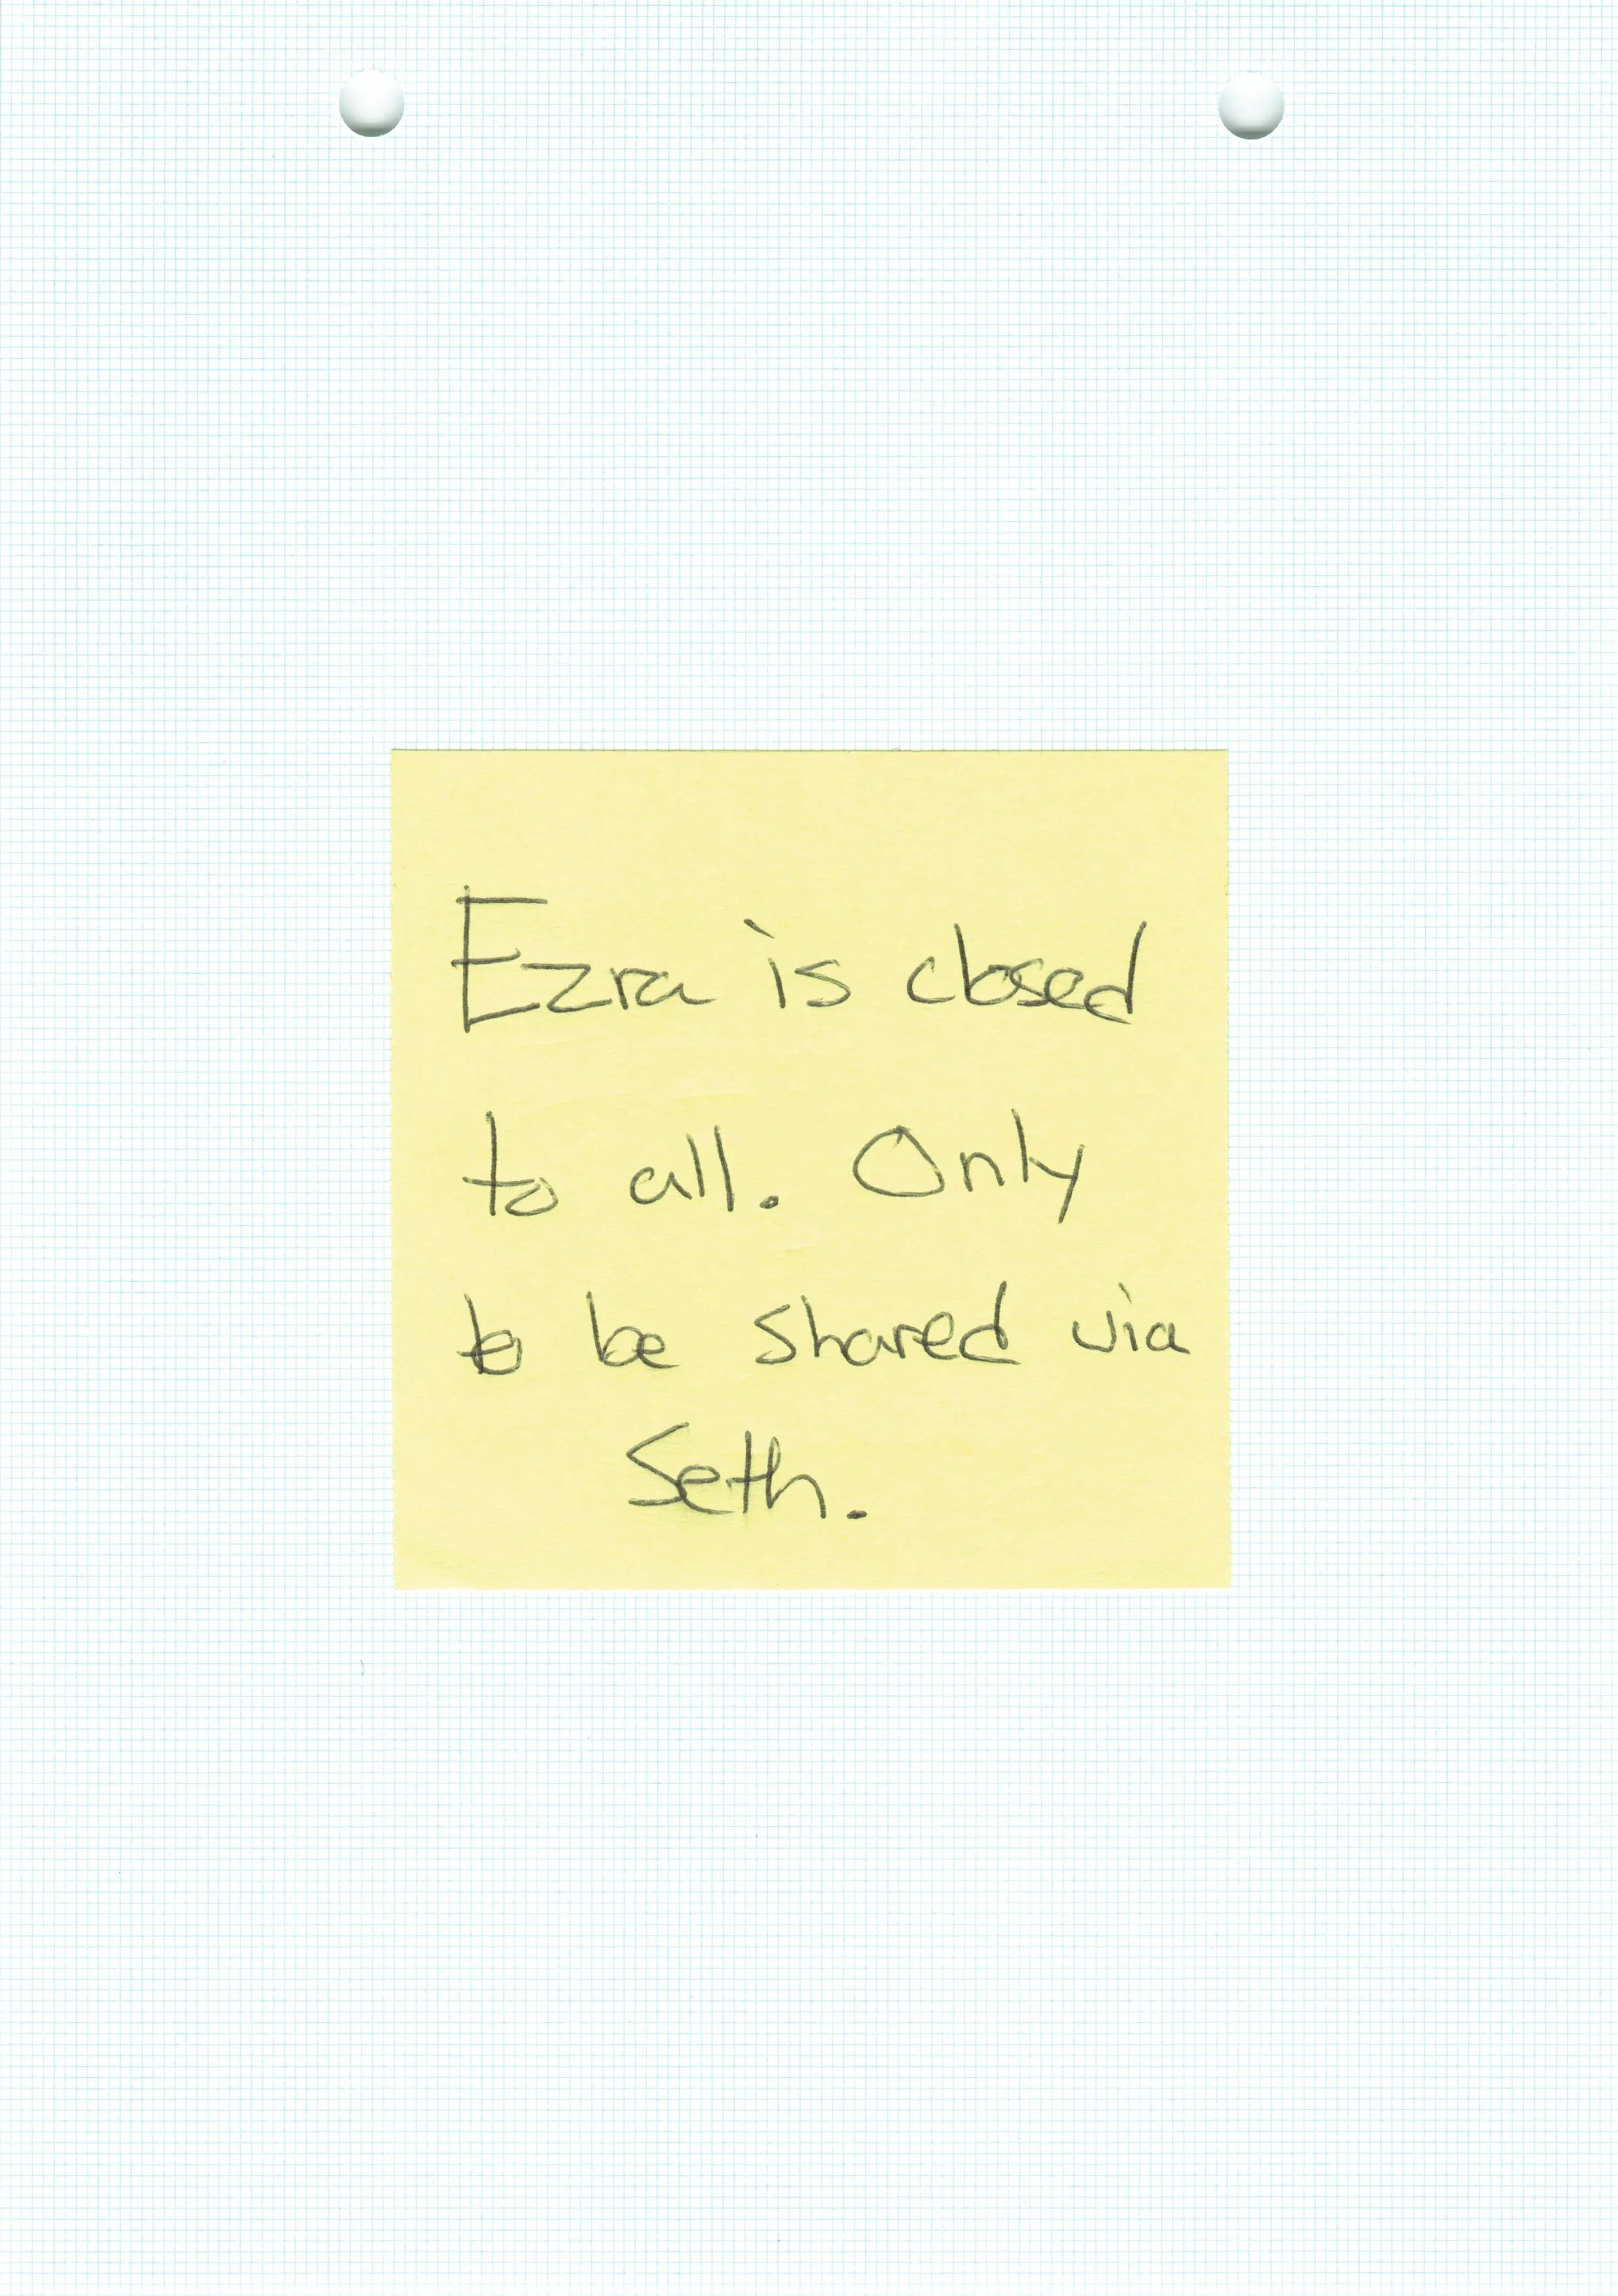 Ezra is closed
to all. Only
to be shared via
Seth.